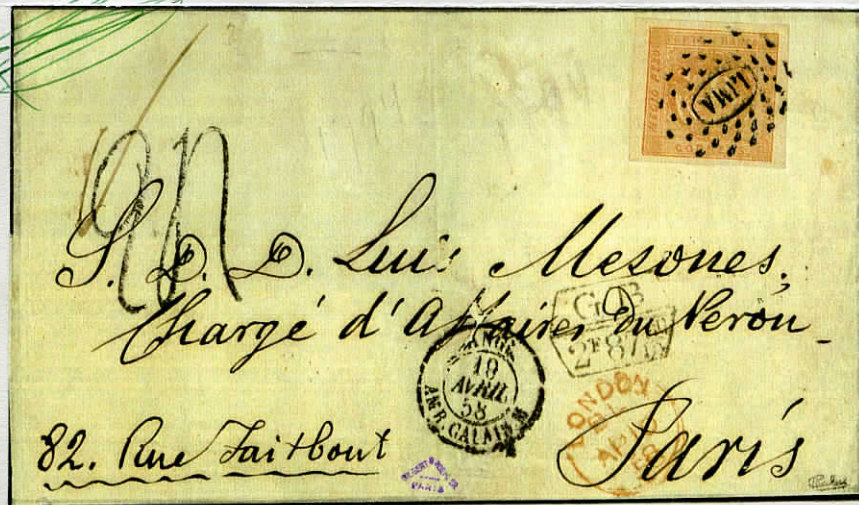 LIMA
S. D. D. Luis Mesones,
Chargé d'Affaires du Pérou
GB
2F 87
19
AVRIL
58
AMB. CALAIS
LONDON
82. Rue Taitbout
Paris
PARIS